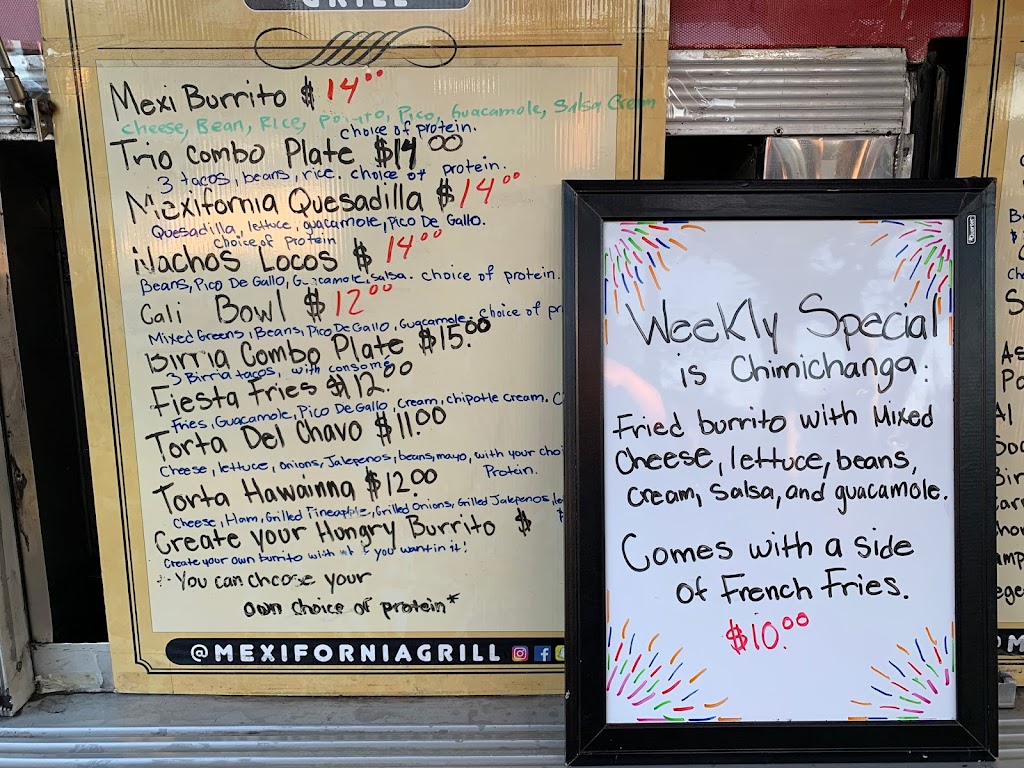 GRILL
Mexi Burrito $14.00
Cheese, Bean, Rice, Potato, Pico, Guacamole, Salsa Cream
choice of protein.
Trio Combo Plate $14.00
3 tacos, beans, rice. choice of protein.
Mexifornia Quesadilla $14.00
Quesadilla, lettuce, guacamole, Pico De Gallo.
choice of protein
Nachos Locos $14.00
Beans, Pico De Gallo, Guacamole, salsa. choice of protein.
Cali Bowl $12.00
Mixed Greens, Beans, Pico De Gallo, Guacamole. choice of pr
Birria Combo Plate $15.00
3 Birria tacos, with consomé
Fiesta Fries $12.00
Fries, Guacamole, Pico De Gallo, Cream, chipotle cream. C
Torta Del Chavo $11.00
Cheese, lettuce, onions, Jalepenos, beans, mayo, with your choi
Protein.
Torta Hawainna $12.00
Cheese, Ham, Grilled Pineapple, Grilled Onions, Grilled Jalepenos, le
Create your Hungry Burrito $
Create your own burrito with you want in it!
You can choose your
own choice of protein*
@MEXIFORNIAGRILL
Weekly Special
is Chimichanga:
Fried burrito with Mixed
Cheese, lettuce, beans,
Cream, Salsa, and guacamole.
Comes with a side
of French Fries.
$10.00